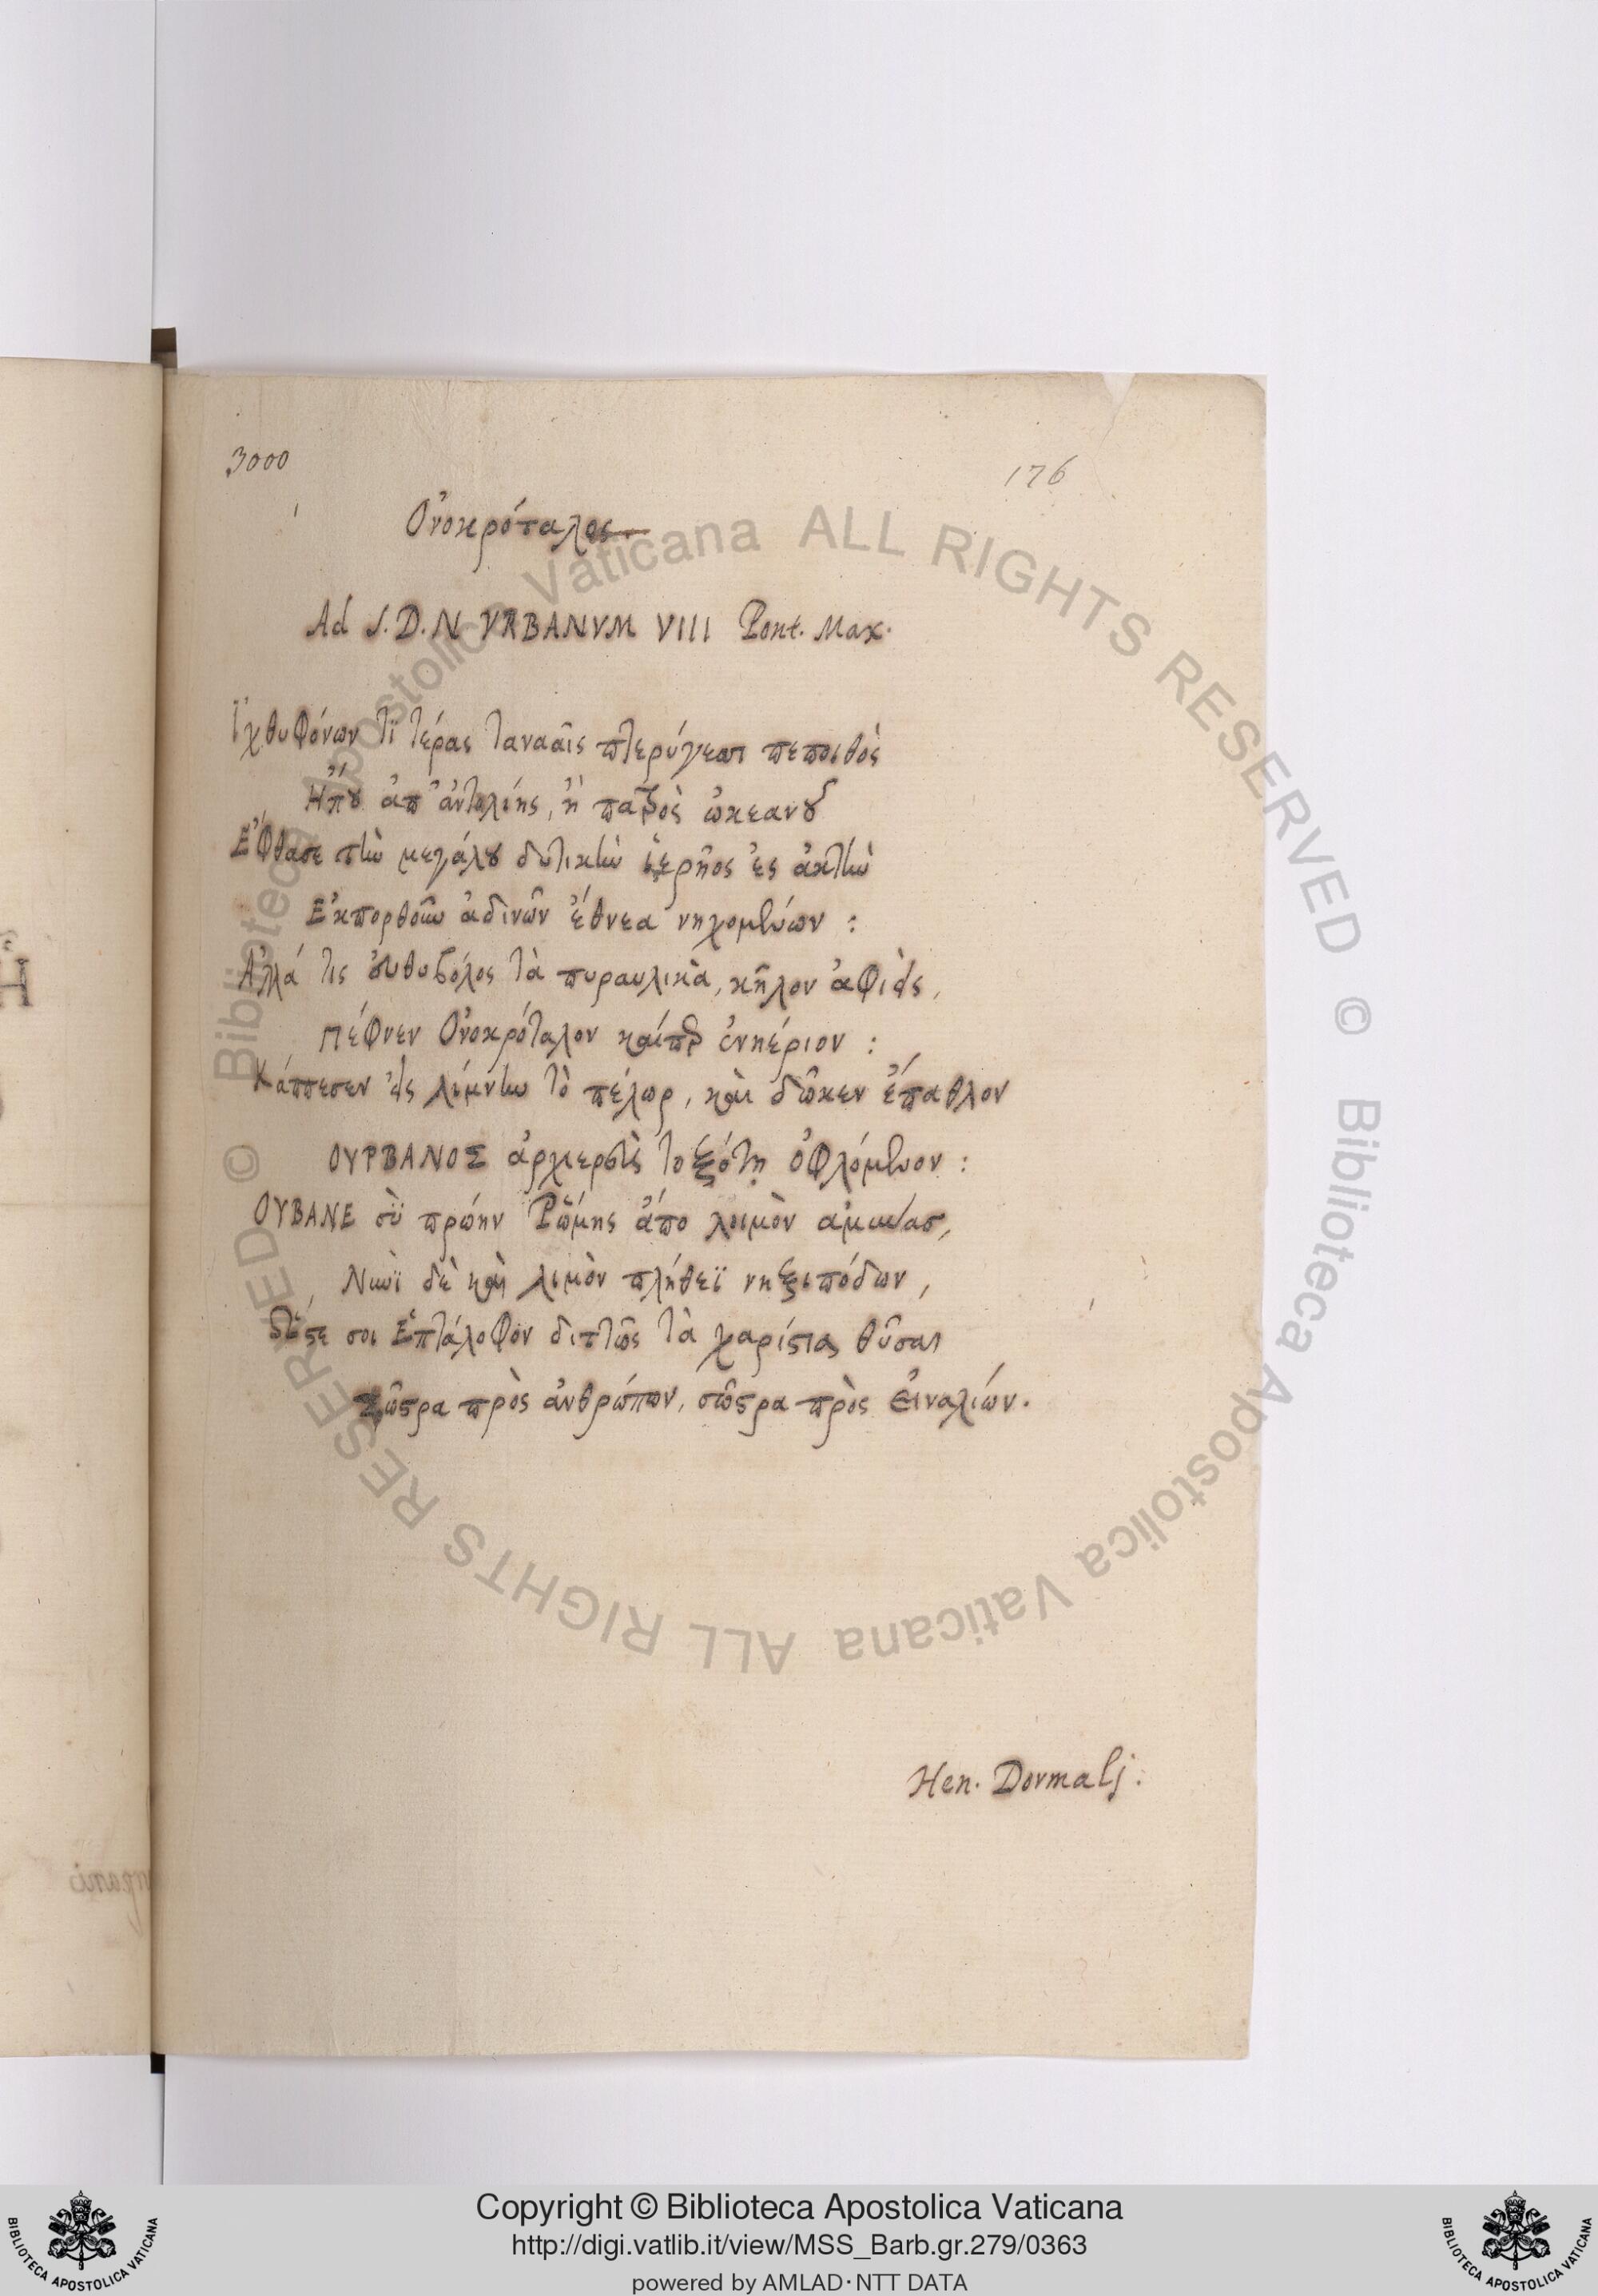 3000
176
Ὀνοκρόταλος
Ad S. D. N VRBANVM VIII Pont. Max.
Ἰχθυφόνων τὶ τέρας τανααῖς πτερύγεσσι πεποιθὸς
Ἤπου ἀπ' ἀντολίης, ἢ πατρὸς ὠκεανοῦ
Ἔφθασε τὴν μεγάλου δυτικὴν ἱερῆος ἐς ἀκτὴν
Ἐκπορθοῦν ἀδινῶν ἔθνεα νηχομένων :
Ἀλλά τις εὐθυβόλος τὰ πυραυλικὰ, κῆλον ἀφιεὶς,
Πέφνεν Ὀνοκρόταλον καίπερ ἐνηέριον :
Κάππεσεν εἰς λίμνην τὸ πέλωρ, καὶ δῶκεν ἔπαθλον
ΟΥΡΒΑΝΟΣ ἀρχιερεὺς τοξότῃ ὀφλόμενον :
ΟΥΒΑΝΕ σὺ πρώην Ῥώμης ἄπο λοιμὸν ἀμύνας,
Νυνὶ δὲ καὶ λιμὸν πλήθεϊ νηξιπόδων,
σοι Ἑπτάλοφον διττῶς τὰ χαρίστια θῦσαι
Σῶστρα πρὸς ἀνθρώπων, σῶστρα πρὸς εἰναλίων.
Hen. Dormalj.
Copyright © Biblioteca Apostolica Vaticana
http://digi.vatlib.it/view/MSS_Barb.gr.279/0363
powered by AMLAD·NTT DATA
BIBLIOTECA APOSTOLICA VATICANA
BIBLIOTECA APOSTOLICA VATICANA
© Biblioteca Apostolica Vaticana ALL RIGHTS RESERVED © Biblioteca Apostolica Vaticana ALL RIGHTS RESERVED